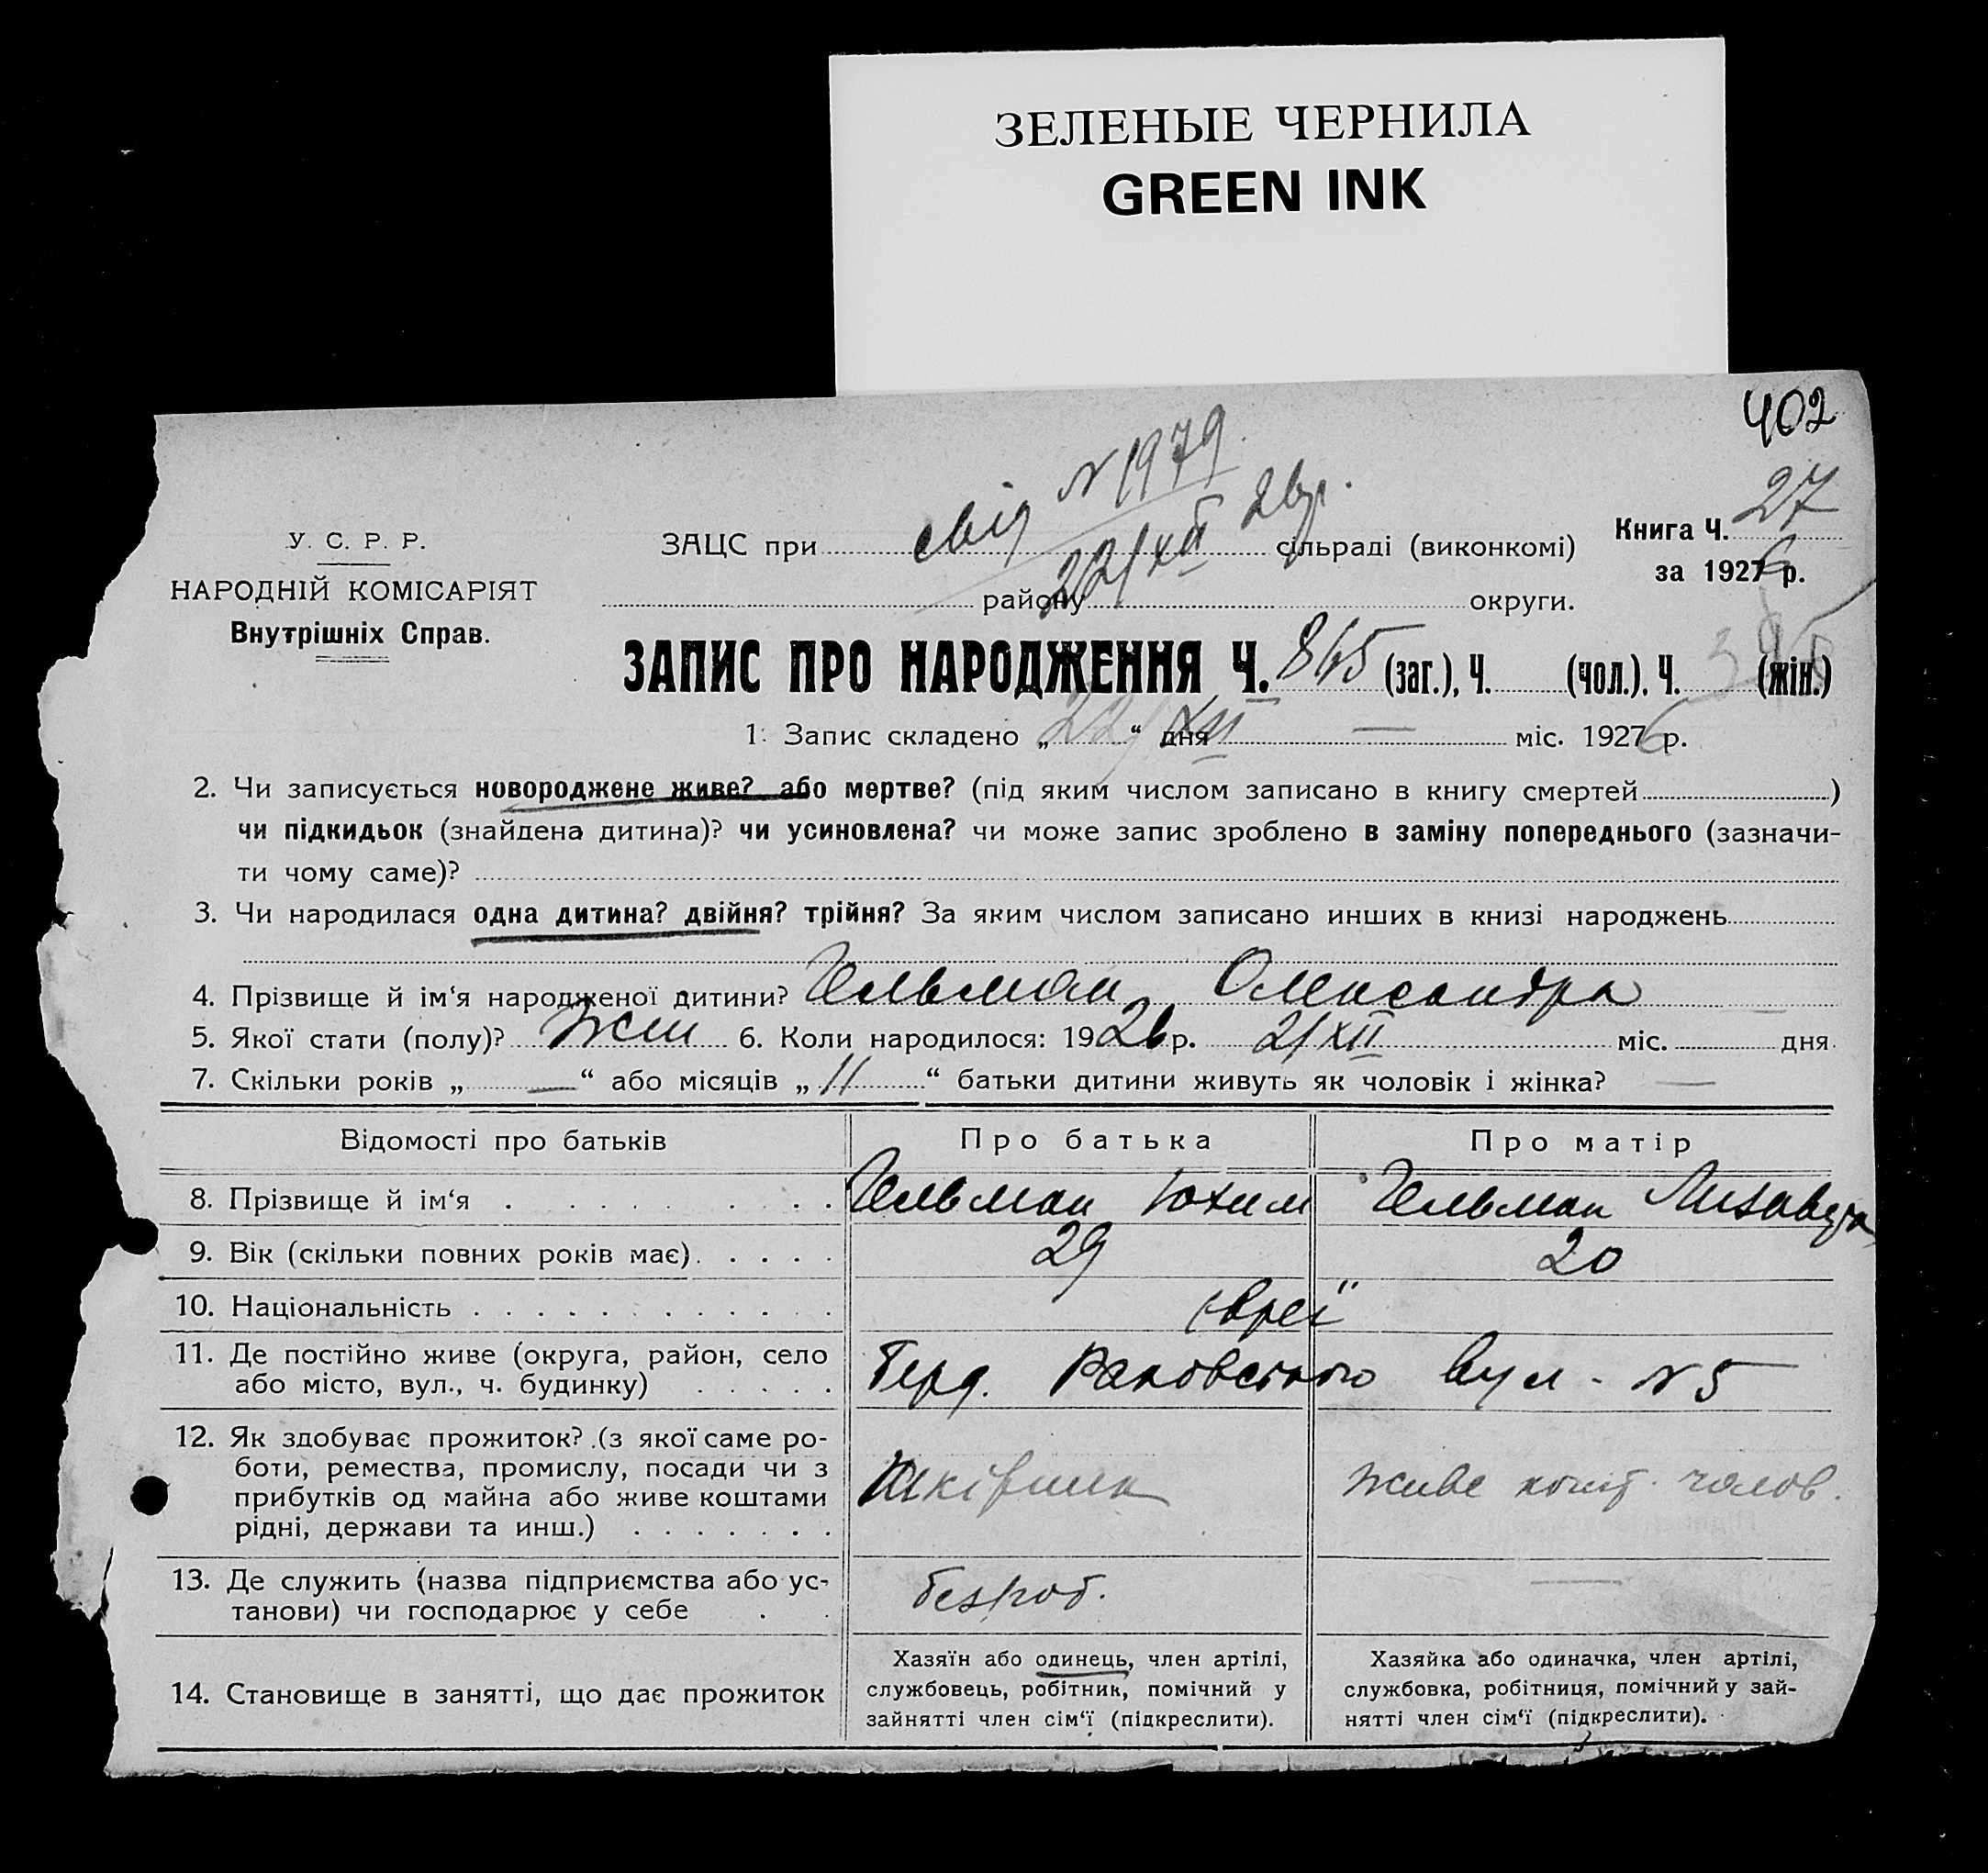 ЗЕЛЕНЫЕ ЧЕРНИЛА
GREEN INK
402
свід N 1979
22/XII 26 р.
У. С. Р. Р.
НАРОДНІЙ КОМІСАРІЯТ
Внутрішніх Справ.
ЗАЦС при сільраді (виконкомі)
району округи.
Книга Ч. 27
за 1926 р.
ЗАПИС ПРО НАРОДЖЕННЯ Ч. 865 (заг.), Ч. (чол.). Ч. (жін.)
1. Запис складено „ 22/XII “ дня — міс. 1926 р.
2. Чи записується новороджене живе? або мертве? (під яким числом записано в книгу смертей )
чи підкидьок (знайдена дитина)? чи усиновлена? чи може запис зроблено в заміну попереднього (зазначи-
ти чому саме)?
3. Чи народилася одна дитина? двійня? трійня? За яким числом записано инших в книзі народжень
4. Прізвище й ім‘я народженої дитини? Гельман Олександра
5. Якої стати (полу)? Жін 6. Коли народилося: 1926 р. 21/XII міс. дня
7. Скільки років „ — “ або місяців „ 11 “ батьки дитини живуть як чоловік і жінка? —
Відомості про батьків Про батька Про матір
8. Прізвище й ім‘я Гельман Юхим Гельман Лизавета
9. Вік (скільки повних років має) 29 20
10. Національність євреї
11. Де постійно живе (округа, район, село
або місто, вул., ч. будинку) Берд. Раковського вул. N 5
12. Як здобуває прожиток? (з якої саме ро-
боти, ремества, промислу, посади чи з
прибутків од майна або живе коштами
рідні, держави та инш.) живе кошт. чолов.
13. Де служить (назва підприємства або ус-
танови) чи господарює у себе безроб. —
14. Становище в занятті, що дає прожиток
Хазяїн або одинець, член артілі,
службовець, робітник, помічний у
зайнятті член сім‘ї (підкреслити).
Хазяйка або одиначка, член артілі,
службовка, робітниця, помічний у зай-
нятті член сім‘ї (підкреслити).